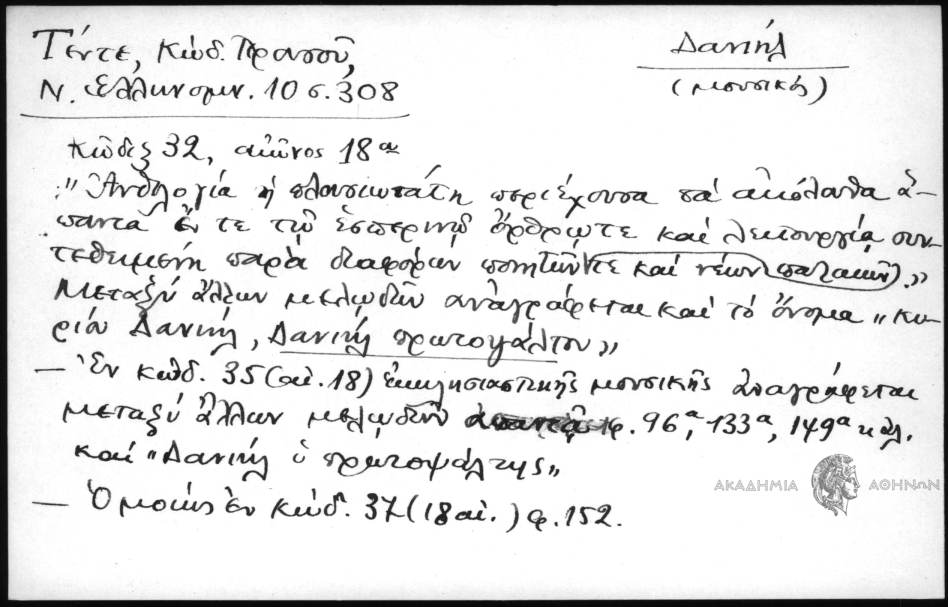 Τέντε, Κώδ. Πρατσοῦ,
Δανιήλ
Ν. Ἑλληνομν. 10 σ. 308
(μουσικός)
Κῶδιξ 32, αἰῶνος 18ου
"Ἀνθλογία ἡ πλουσιωτάτη περιέχουσα τά ἀκόλουθα ἅ-
παντα ἔν τε τῷ ἑσπερινῷ ὄρθρῳ τε καί λειτουργίᾳ συν-
τεθειμένη παρά διαφόρων ποιητῶν τε καί νέων παλαιῶν)."
Μεταξύ ἄλλων μελῳδῶν ἀναγράφεται καί τό ὄνομα "κυ-
ρίου Δανιήλ, Δανιήλ πρωτοψάλτου"
— Ἐν κώδ. 35 (αἰ. 18) ἐκκλησιαστικῆς μουσικῆς ἀναγράφεται
μεταξύ ἄλλων μελῳδῶν φ. 96α, 133α, 149α κἄλ.
καί "Δανιήλ ὁ πρωτοψάλτης"
— Ὁμοίως ἐν κώδ. 37 (18 αἰ.) φ. 152.
ΑΚΑΔΗΜΙΑ ΑΘΗΝΩΝ